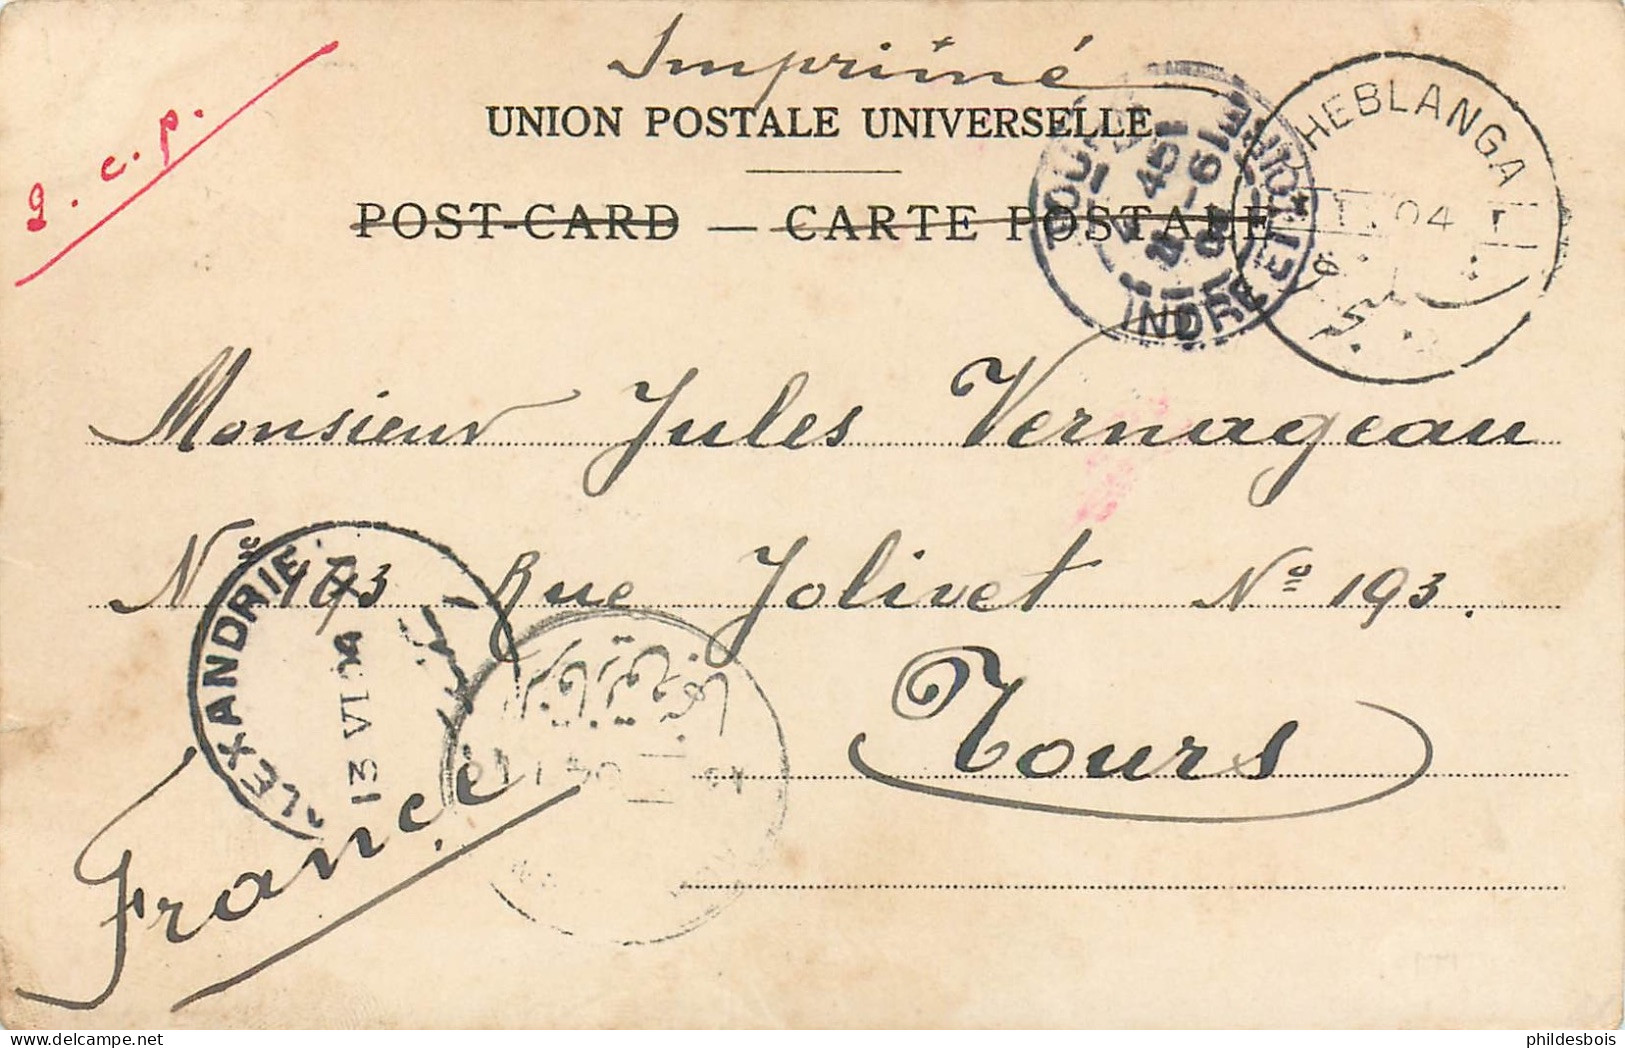 Imprimé
2. c. p.
UNION POSTALE UNIVERSELLE.
POST-CARD — CARTE POSTALE
HEBLANGA
04
شبلنجة
INDRE ET LOIRE
45
Monsieur Jules Vernageau
Rue Jolivet Nº 193.
Tours
France
ALEXANDRIE
13 VI 04
phildesbois